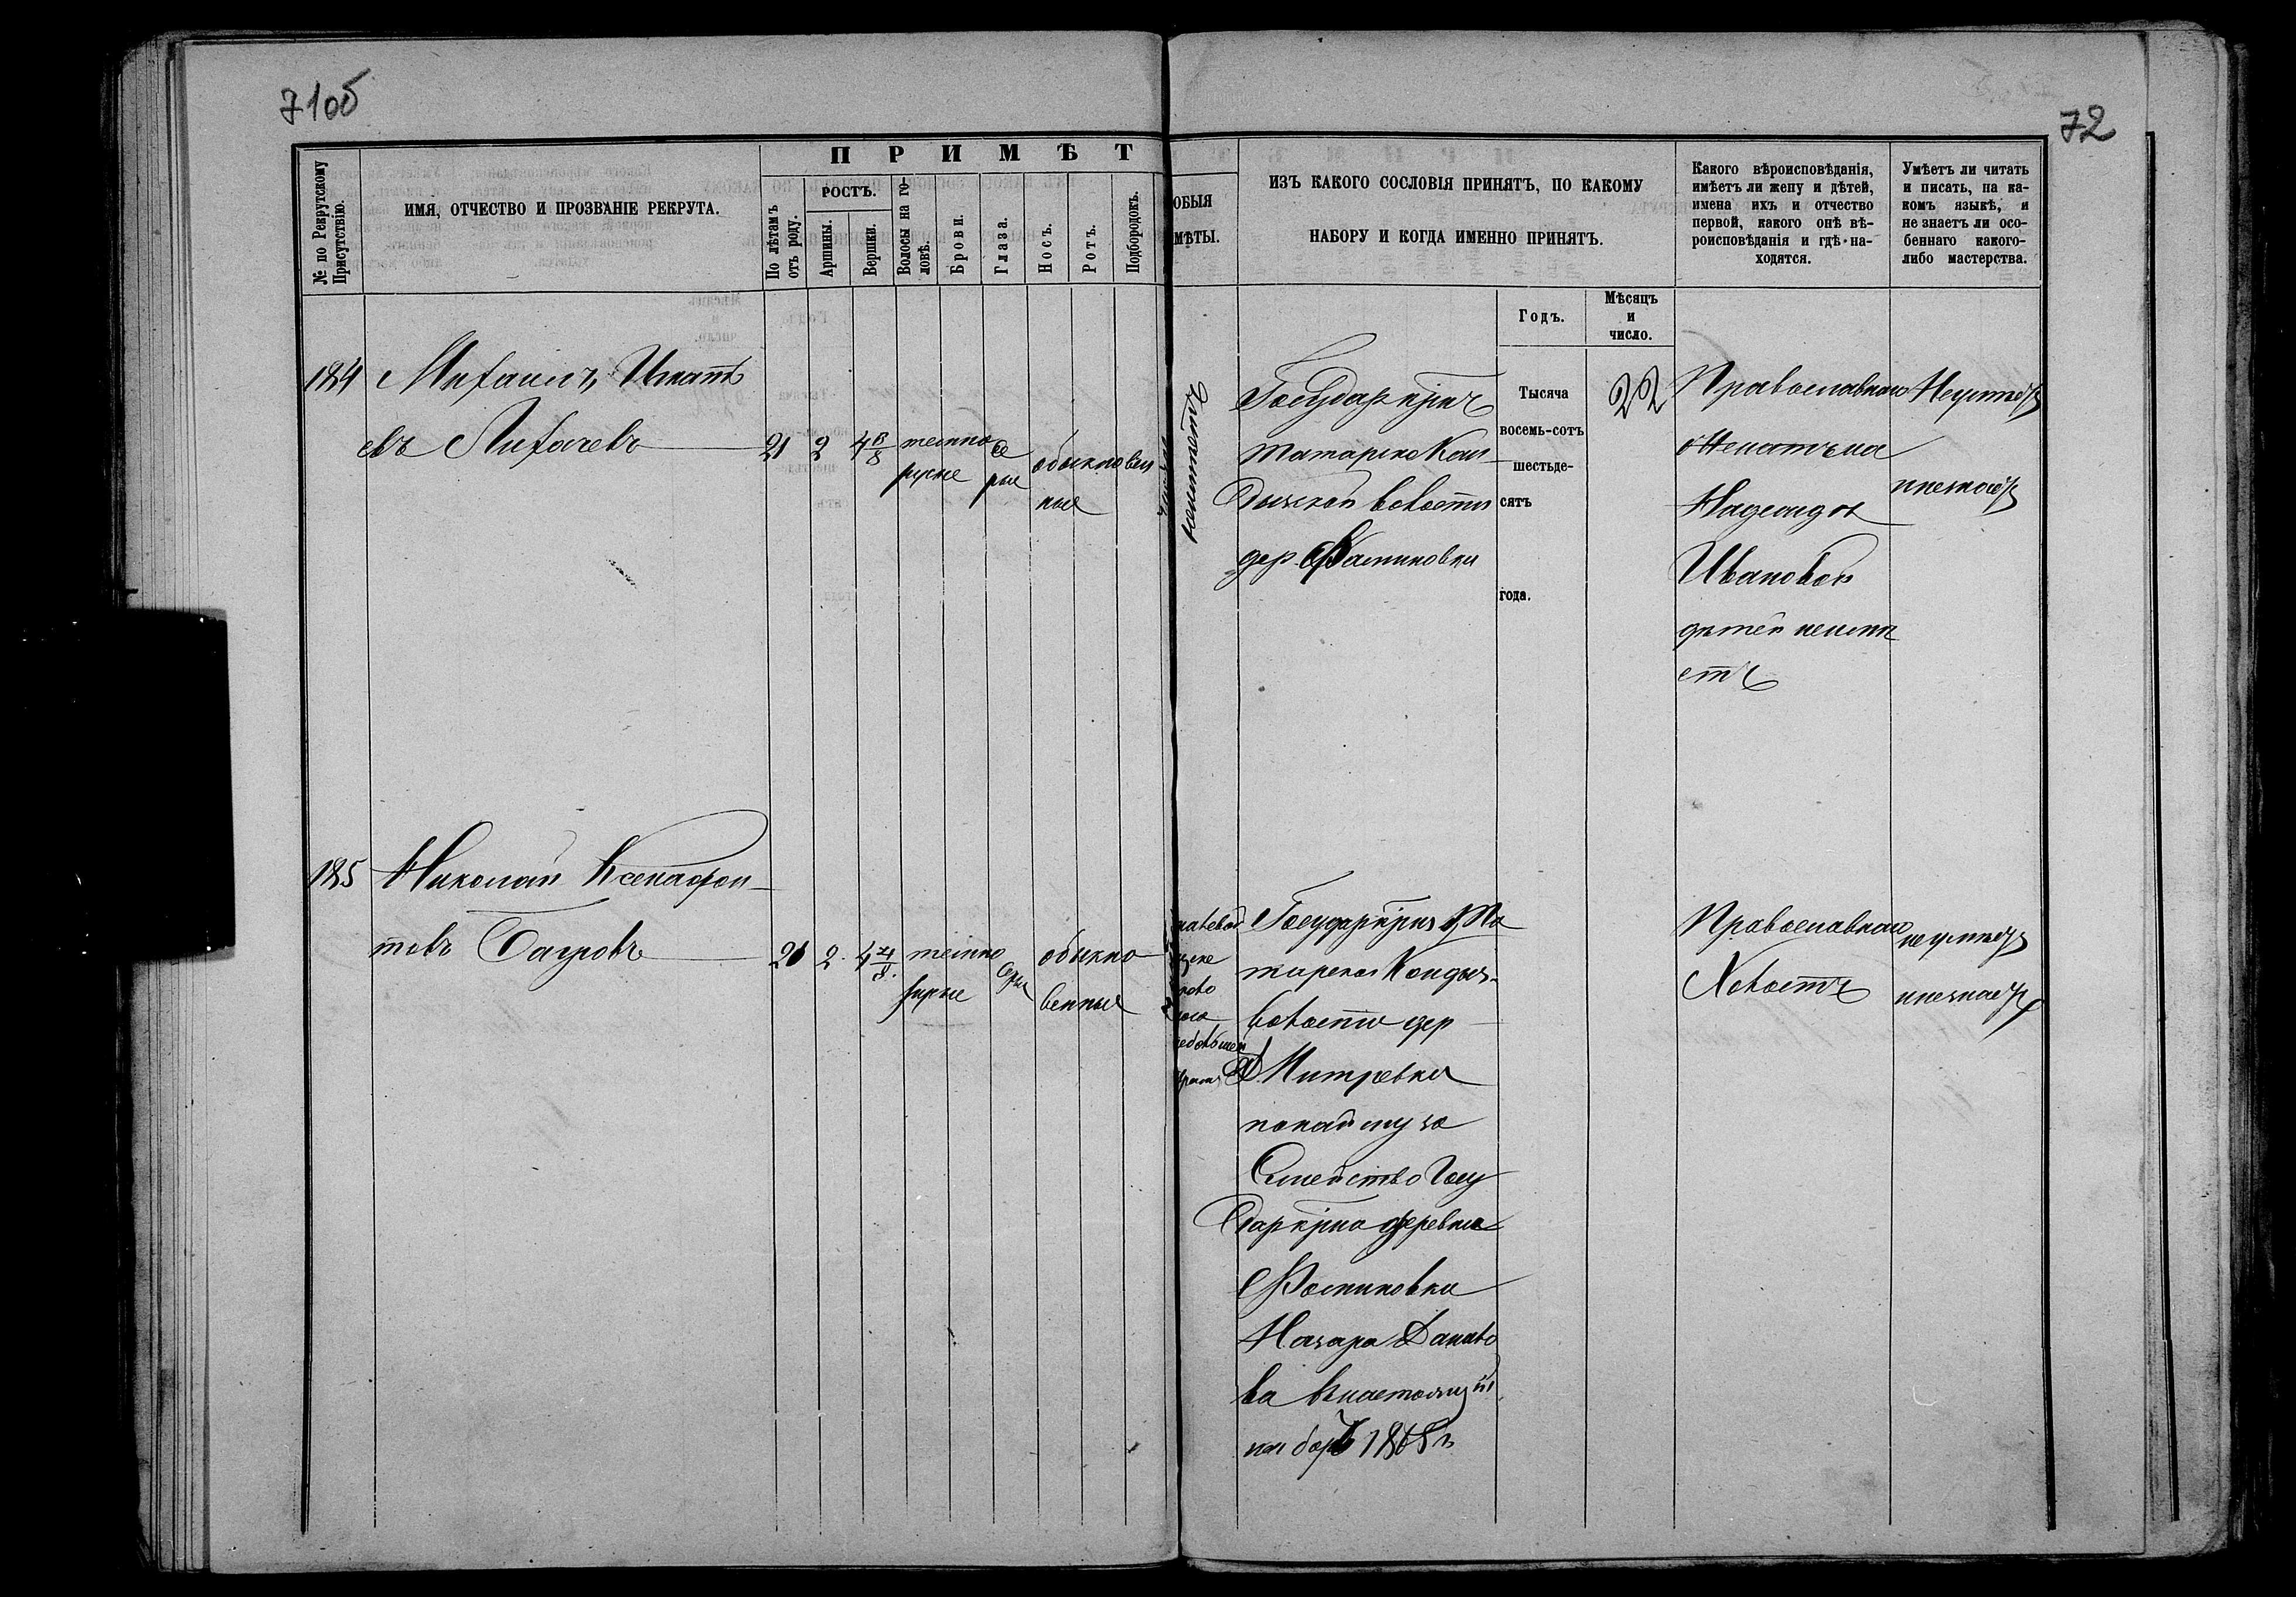 71об
72
ПРИМѢТ
№ по Рекрутскому Присутствію.
ИМЯ, ОТЧЕСТВО И ПРОЗВАНІЕ РЕКРУТА.
По лѣтамъ отъ роду.
РОСТЪ.
Аршины.
Вершки.
Волосы на головѣ.
Брови.
Глаза.
Носъ.
Ротъ.
Подбородокъ.
ОБЫЯ
МѢТЫ.
ИЗЪ КАКОГО СОСЛОВІЯ ПРИНЯТЪ, ПО КАКОМУ
НАБОРУ И КОГДА ИМЕННО ПРИНЯТЪ.
Какого вѣроисповѣданія,
имѣетъ ли жену и дѣтей,
имена ихъ и отчество
первой, какого онѣ вѣ-
роисповѣданія и гдѣ на-
ходятся.
Умѣетъ ли читать
и писать, на ка-
комъ языкѣ, и
не знаетъ ли осо-
беннаго какого-
либо мастерства.
Годъ.
Мѣсяцъ
и
число.
184
Михаилъ Игнать
евъ Лихачевъ
21 2 4 8
темно
русые
се
рые
обыкновен
ные
Государ крест
татарско Кан
дызской волости
дер.
Тысяча
восемь-сотъ
шестьде-
сятъ
года.
22
Православнаго
женатъ на
Надежде
Ивановой
детей неиме
етъ
Неумеетъ
инезнаетъ
185
Николай Ксенафон-
товъ Багровъ
2 4 8
темно
русые
серые
обыкно
венные
Государ крест Та
тарской Кандыз.
волости дер
Дмитревки
по найму за
Семейство Госу
дар крна деревни
Назара Данило
ва внастоящій
наборъ 1868 г
Православнаго
Холостъ
неумеетъ
инезнаетъ